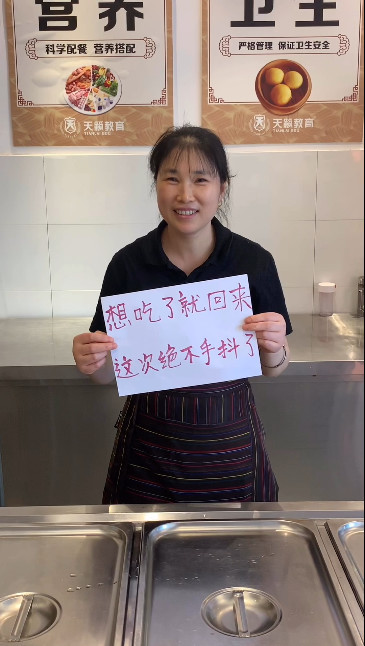 营养
科学配餐 营养搭配
天籁教育
TIANLAI EDU
卫生
严格管理 保证卫生安全
天籁教育
TIANLAI EDU
想吃了就回来
这次绝不手抖了